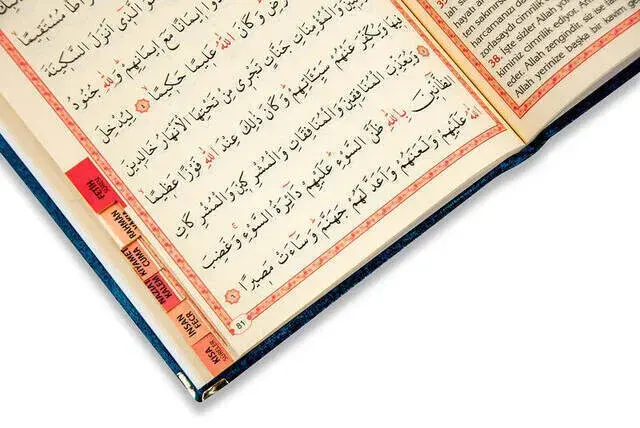 مُسْتَقِيمًا
الَّذِي أَنْزَلَ السَّكِينَةَ
إِيمَانًا مَعَ إِيمَانِهِمْ وَلِلّٰهِ جُنُودُ
وَكَانَ اللّٰهُ عَلِيمًا حَكِيمًا ٤ لِيُدْخِلَ
وَالْمُؤْمِنَاتِ جَنَّاتٍ تَجْرِي مِنْ تَحْتِهَا الْأَنْهَارُ خَالِدِينَ
فِيهَا وَيُكَفِّرَ عَنْهُمْ سَيِّئَاتِهِمْ وَكَانَ ذٰلِكَ عِنْدَ اللّٰهِ فَوْزًا عَظِيمًا
٥ وَيُعَذِّبَ الْمُنَافِقِينَ وَالْمُنَافِقَاتِ وَالْمُشْرِكِينَ وَالْمُشْرِكَاتِ
الظَّانِّينَ بِاللّٰهِ ظَنَّ السَّوْءِ عَلَيْهِمْ دَائِرَةُ السَّوْءِ وَغَضِبَ
اللّٰهُ عَلَيْهِمْ وَلَعَنَهُمْ وَأَعَدَّ لَهُمْ جَهَنَّمَ وَسَاءَتْ مَصِيرًا ٦
81
FETİH
SURESİ
RAHMAN
CUMA
KIYAMET
KALEM
NAZİAT
FECR
İNSAN
KISA
SURELER
hayatı
ten sakınırsanız
harcamanızı
zorlasaydı cimrilik
38. İşte sizler Allah
kiminiz cimrilik ediyor.
eder. Allah zengindir, siz ise
Allah yerinize başka bir kavim